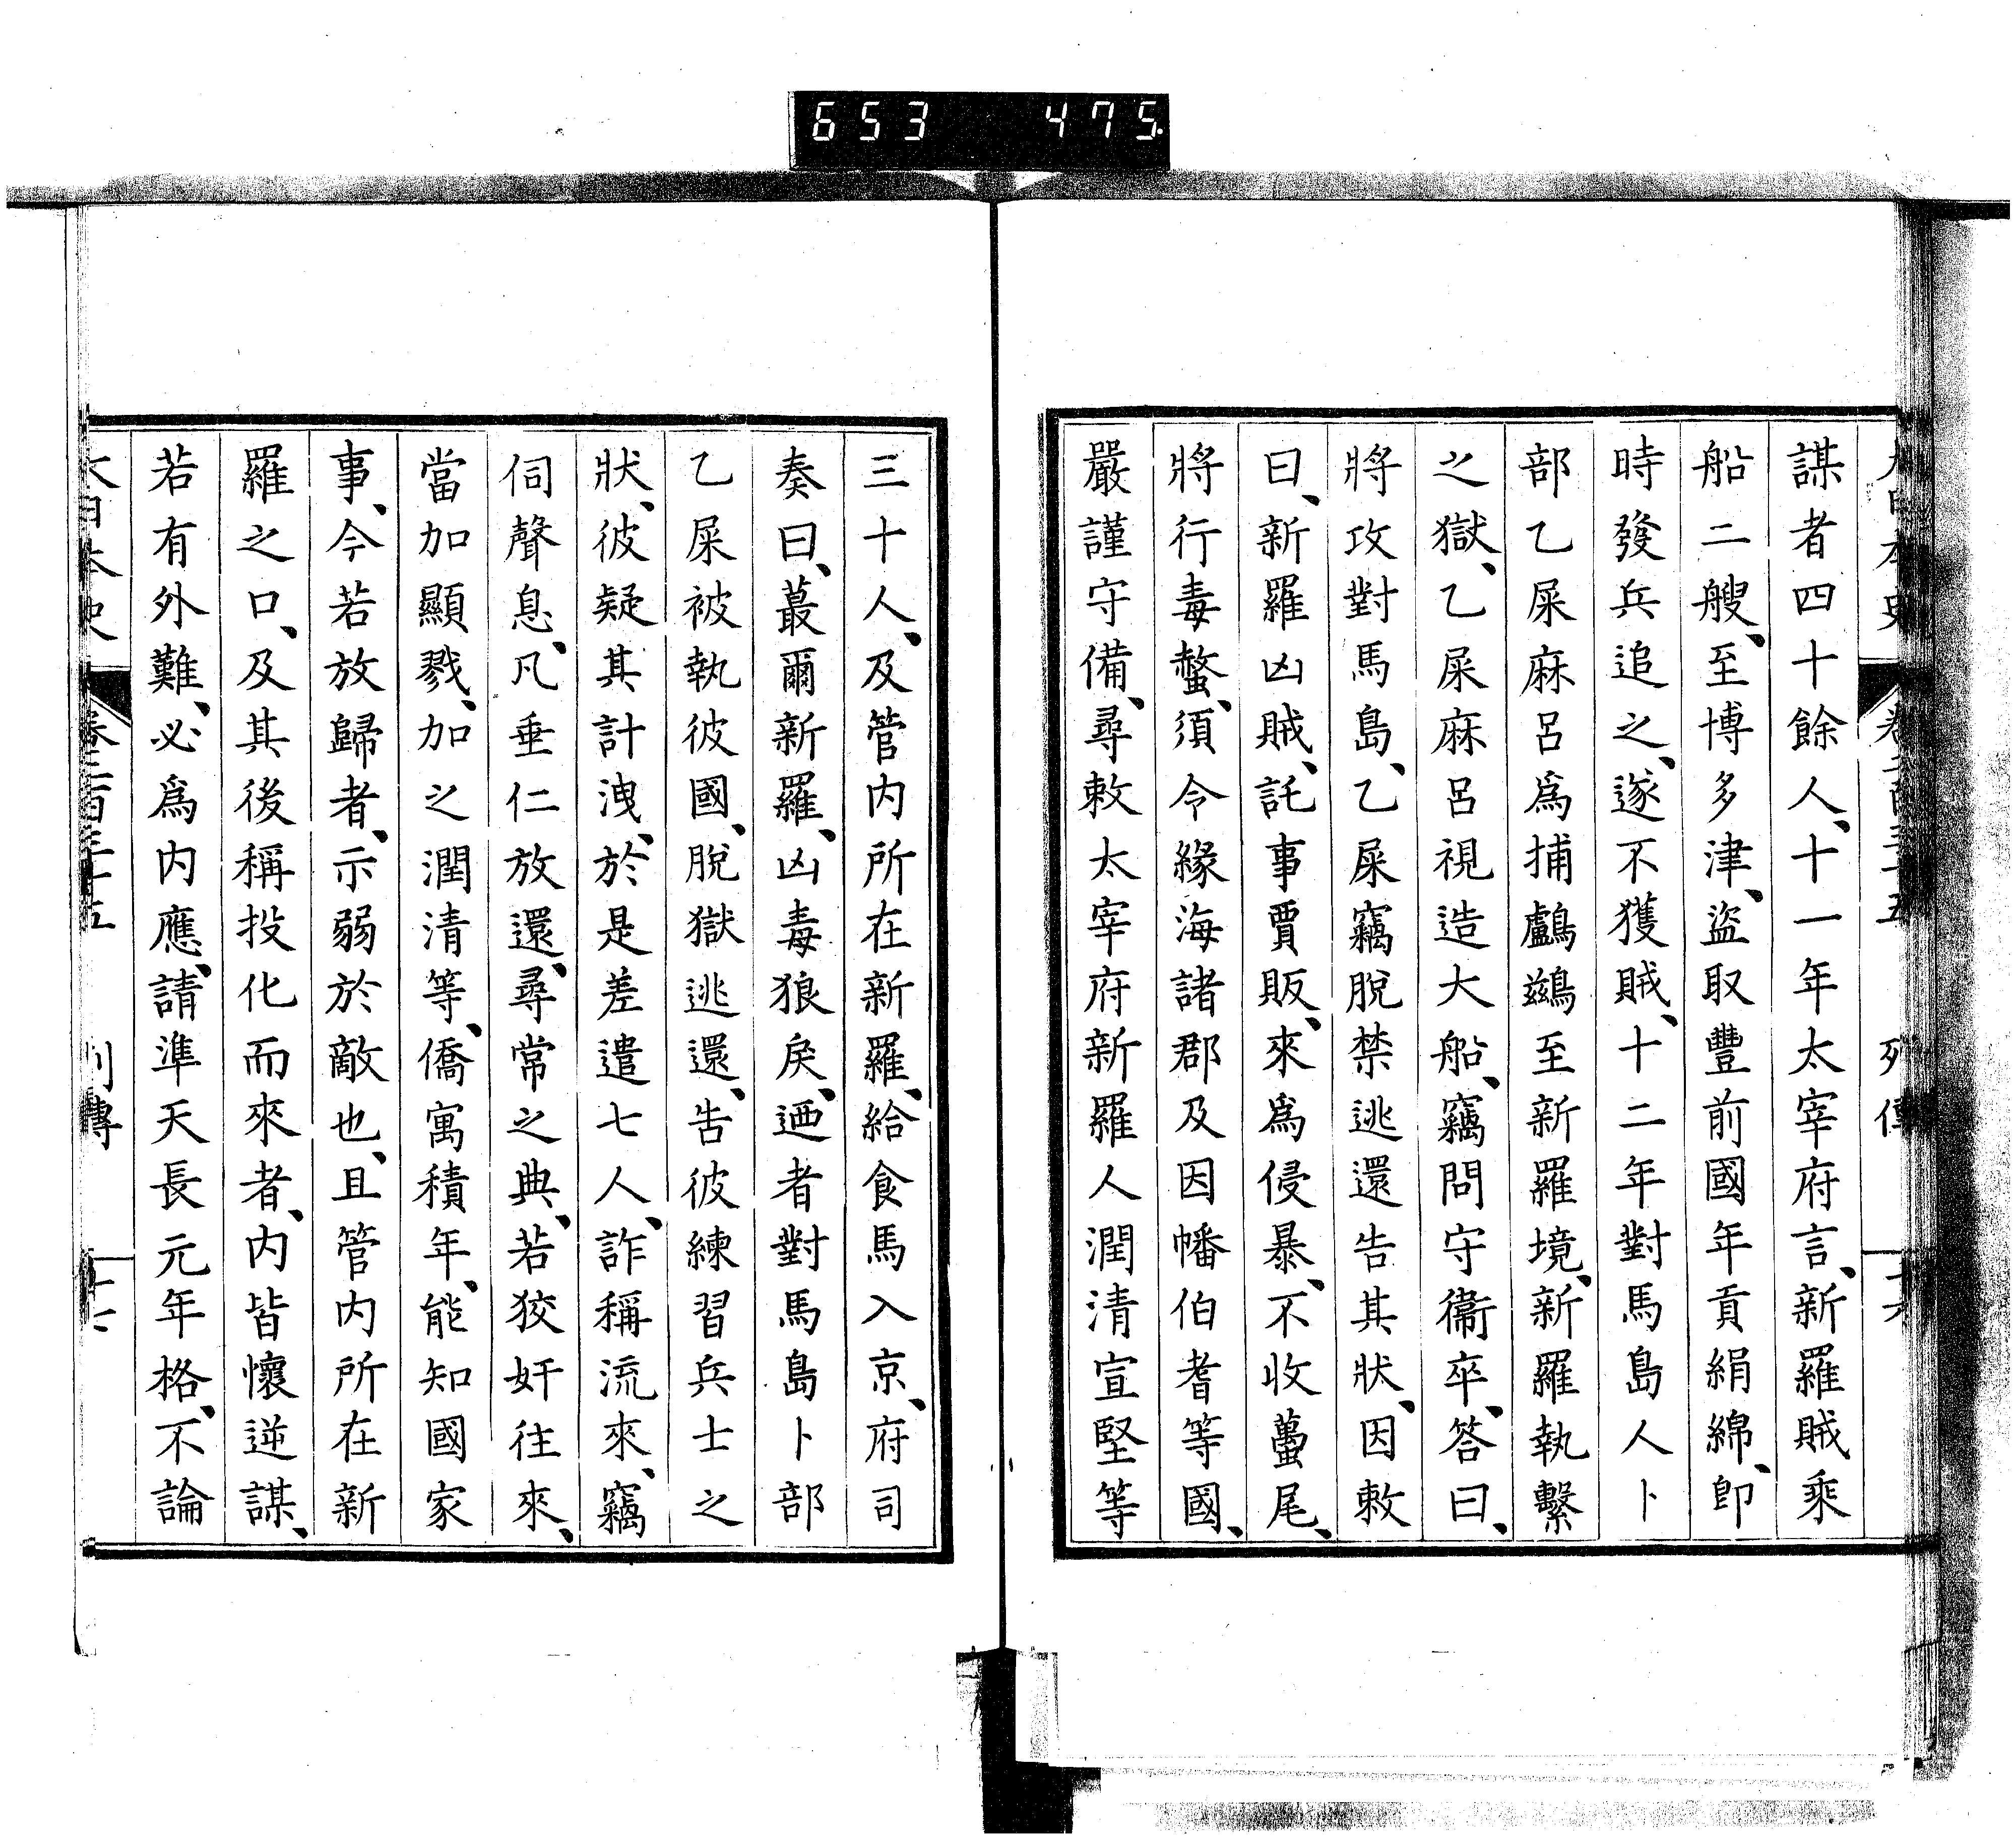 653 475
大日本史 卷二百三十五 列傳 十六
謀者四十餘人、十一年太宰府言、新羅賊乘
船二艘、至博多津、盜取豐前國年貢絹綿、即
時發兵追之、遂不獲賊、十二年對馬島人卜
部乙屎麻呂爲捕鸕鷀至新羅境、新羅執繫
之獄、乙屎麻呂視造大船、竊問守衞卒、答曰、
將攻對馬島、乙屎竊脫禁逃還告其狀、因敕
曰、新羅凶賊、託事賈販、來爲侵暴、不收蠆尾、
將行毒螫、須令緣海諸郡及因幡伯耆等國、
嚴謹守備、尋敕太宰府新羅人潤清宣堅等
三十人、及管內所在新羅、給食馬入京、府司
奏曰、蕞爾新羅、凶毒狼戾、迺者對馬島卜部
乙屎被執彼國、脫獄逃還、告彼練習兵士之
狀、彼疑其計洩、於是差遣七人、詐稱流來、竊
伺聲息、凡垂仁放還、尋常之典、若狡奸往來、
當加顯戮、加之潤清等、僑寓積年、能知國家
事、今若放歸者、示弱於敵也、且管內所在新
羅之口、及其後稱投化而來者、內皆懷逆謀、
若有外難、必爲內應、請準天長元年格、不論
大日本史 卷二百三十五 列傳 十七